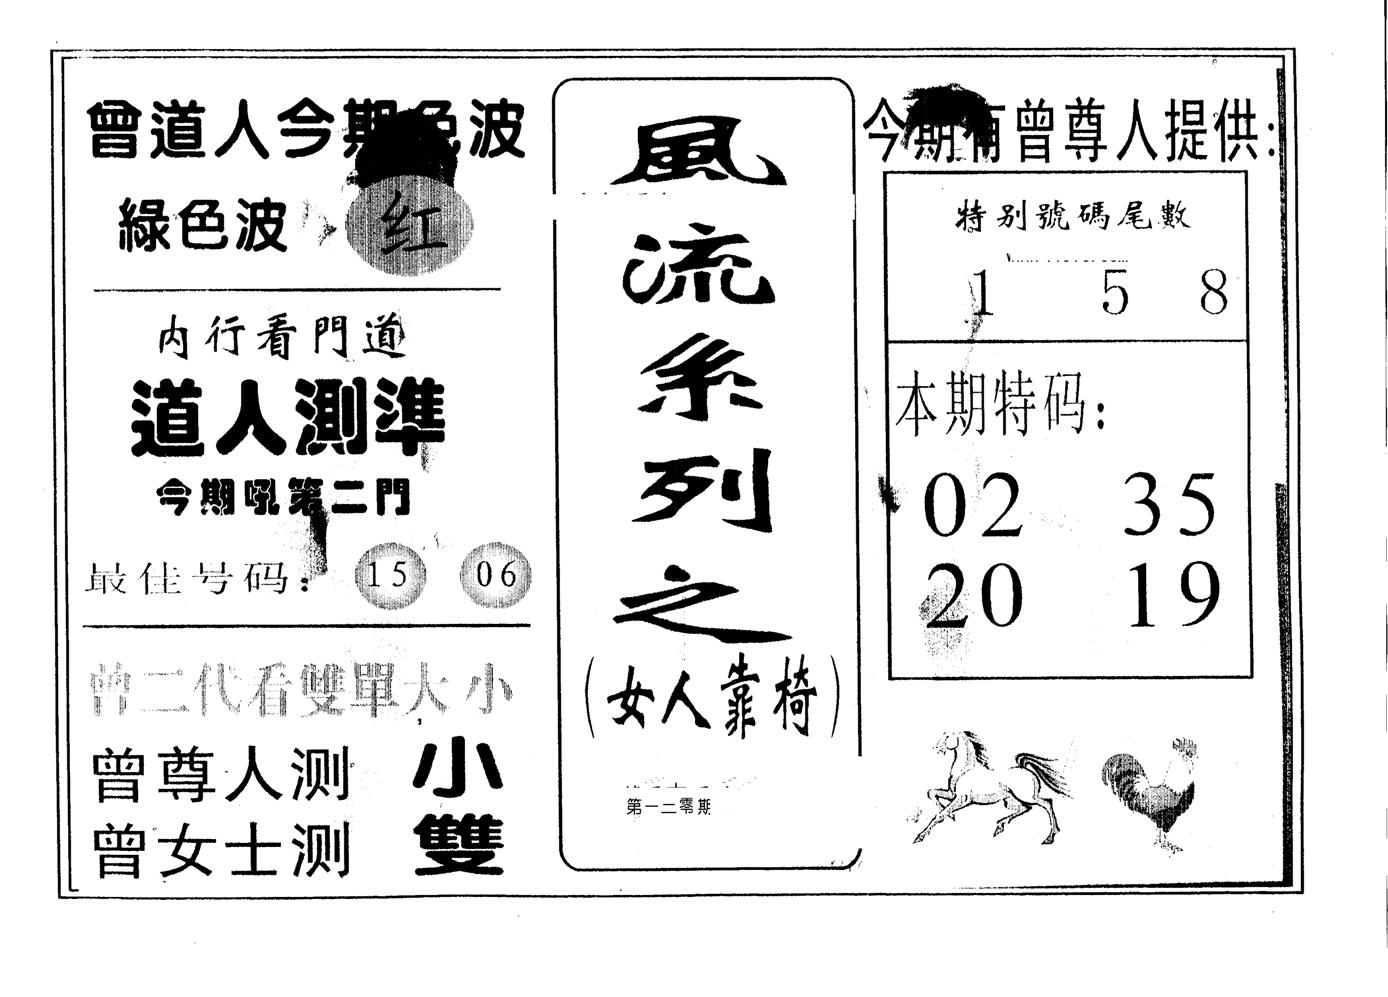 曾道人今期色波
綠色波 红
内行看門道
道人測準
今期吼第二門
最佳号码: 15 06
曾二代看雙單大小
曾尊人测 小
曾女士测 雙
風流系列之
(女人靠椅)
第一二零期
今期有曾尊人提供:
特别號碼尾數
1 5 8
本期特码:
02 35
20 19